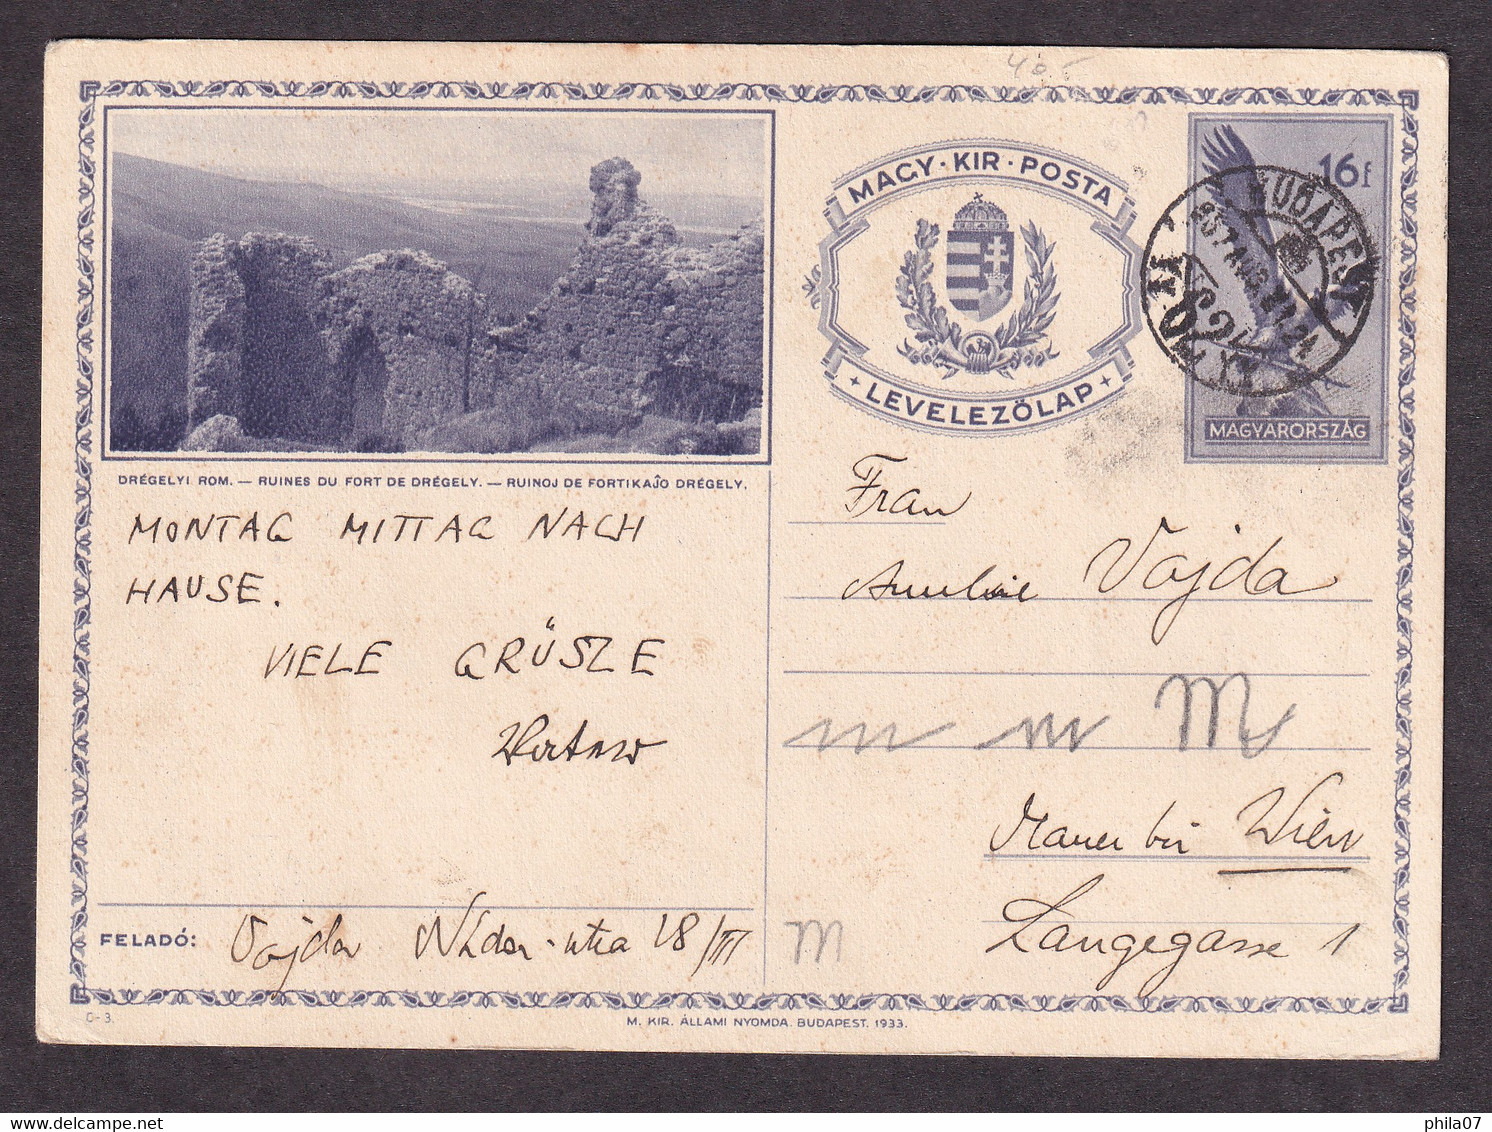 40.-
MAGY·KIR·POSTA
LEVELEZŐLAP
16f
BUDAPEST
MAGYARORSZÁG
DRÉGELYI ROM. — RUINES DU FORT DE DRÉGELY. — RUINOJ DE FORTIKAĴO DRÉGELY.
MONTAG MITTAG NACH
HAUSE.
VIELE GRÜSZE
Frau
Amelie Vajda
Mauer bei Wien
Langegasse 1
FELADÓ: Vajda Nádor-utca 28/III
M
C-3.
M. KIR. ÁLLAMI NYOMDA. BUDAPEST. 1933.
phila07